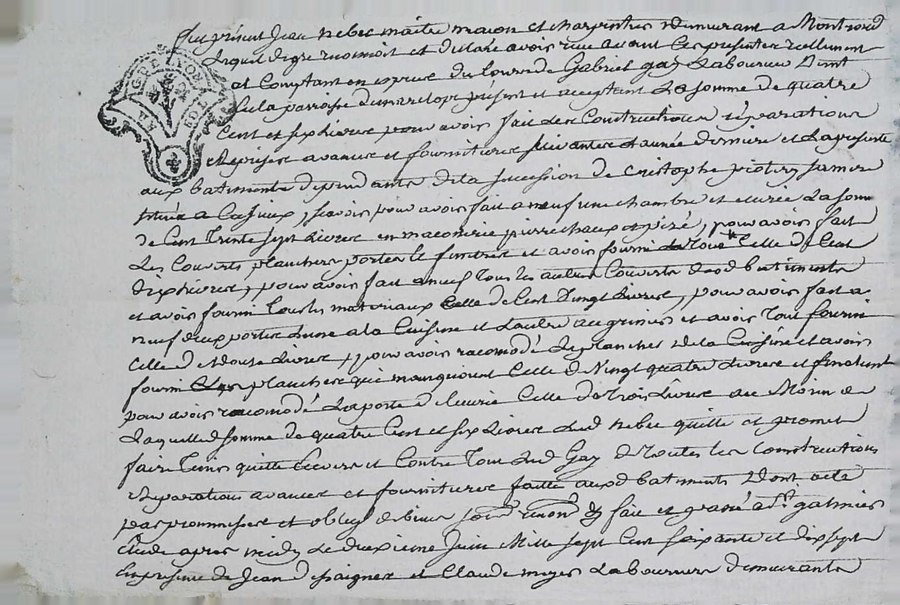 G. DE LYON
Fut présent Jean Nebec maitre macon et charpentier demeurant a Montrond
Lequel de gré reconnoit et declare avoir reçu avant Ces presentes reellement
et Comptant en espece du Cours de Gabriel gay Laboureur
de la parroisse present et aceptant La somme de quatre
Cent et six livres pour avoir fait des Constructions réparations
Reprises avances et fournitures suivantes L'année derniere et La presente
aux batiments dependants de la succession de Cristophe
située a Cuzieux, scavoir pour avoir fait a neuf une chambre et ecurie La somme
de Cent Trente sept Livres en maconerie pierre chaux et pizé, pour avoir fait
Les Couverts planchers portes et fenêtres et avoir fourni Tout Celle de Cent
dix livres, pour avoir fait a neuf Tous les autres Couverts desd batiments
et avoir fourni Tous les materiaux Celle de Cent Vingt Livres, pour avoir fait a
neuf deux portes L'une a la Cuisine et L'autre au grenier et avoir Tout fourni
Celle de douze Livres, pour avoir racomodé Le plancher de la Cuisine et avoir
fourni Les planchers qui manquoient Celle de Vingt quatre Livres et finalement
pour avoir racomodé La porte d'Ecurie Celle de Trois Livres au Moien de
Laquelle d somme de quatre Cent et six Livres Led Nebec quitte et promet
faire Tenir quitte Envers et Contre Tous Led Gay de Toutes les Constructions
Reparations avances et fournitures faittes auxd batiments Dont acte
par promesses et oblig de biens soum renon & fait et passé a St galmier
Etude apres midy Le deuxieme Juin Mille sept Cent soixante et dix sept
En presence de Jean et Claude Laboureurs demeurants